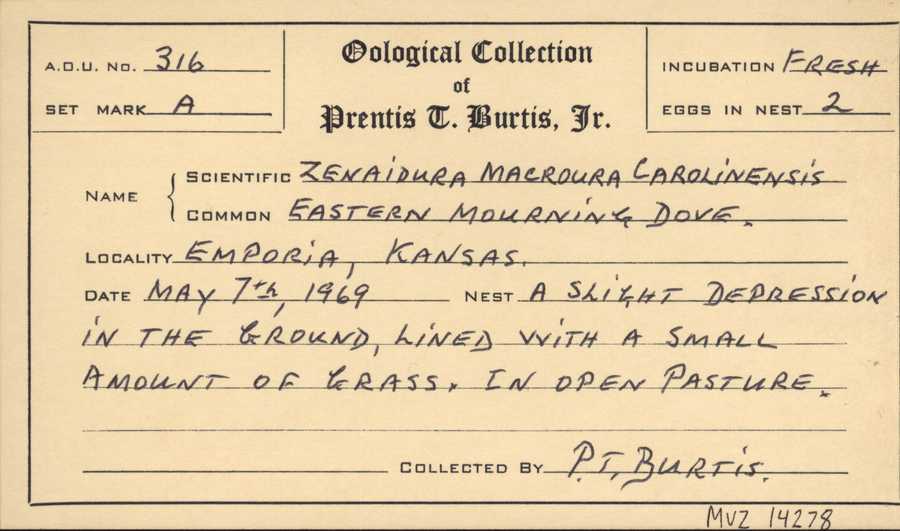 A.O.U. No. 316
Set Mark A
Oological Collection
of
Prentis T. Burtis, Jr.
Incubation Fresh
Eggs in Nest 2
Name
Scientific Zenaidura Macroura Carolinensis
Common Eastern Mourning Dove.
Locality Emporia, Kansas.
Date May 7th, 1969 Nest A slight depression
in the ground, lined with a small
amount of grass. In open pasture.
Collected By P.T. Burtis.
MVZ 14278